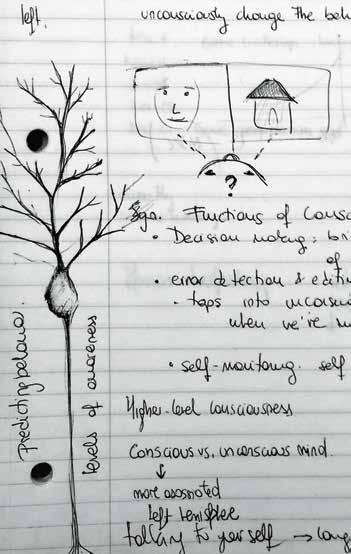 left.
unconsciously change the beh
?
Functions of Consc
• Decision making: bri
of
• error detection & editi
- taps into unconsci
when we're
• self-monitoring. self
Higher-level consciousness
Conscious vs. unconscious mind.
↓
more associated
left hemisphere
talking to yourself →
Predicting behaviour.
levels of awareness